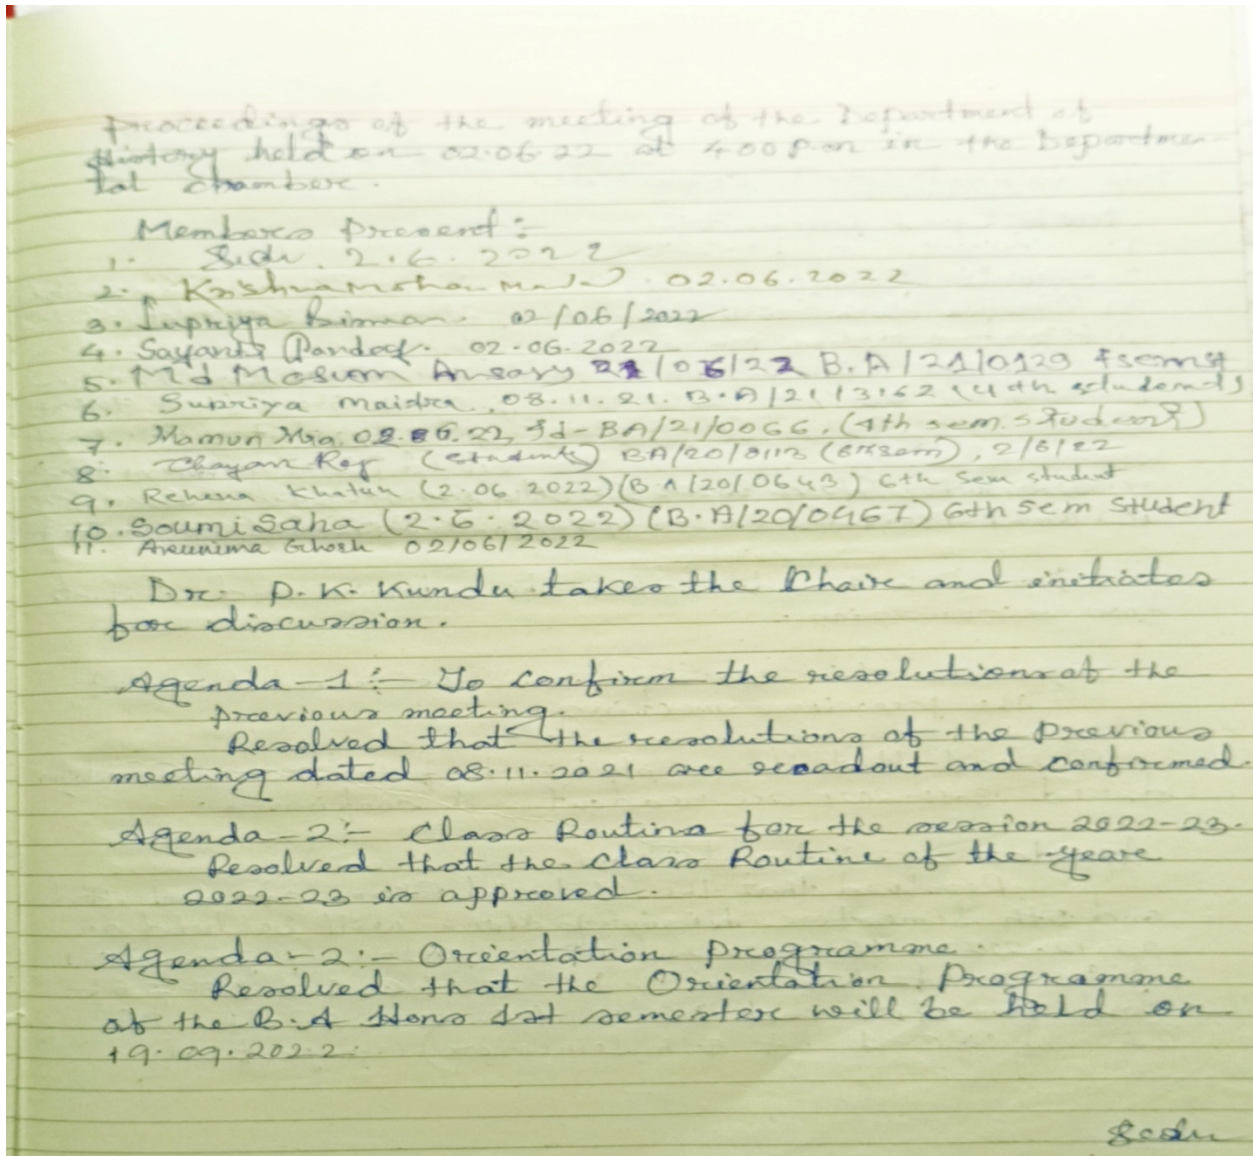 Proceedings of the meeting of the Department of
History held on 02.06.22 at 4.00 p.m in the Departmen-
tal Chamber.
Members Present :
1. 2.6.2022
2. Krishnamohan 02.06.2022
3. Supriya 02/06/2022
4. Sayanti Pandey. 02.06.2022
5. Md Masum Ansary /06/22 B.A/21/0129
6. Supriya Maidra 08.11.21. B.A/21/ (4th students)
7. Mamun Mia, 02.06.22, Id-BA/21/0066, (4th sem. student)
8. Chayan Roy (Student) BA/20/0113 (6thsem), 2/6/22
9. Rehena Khatun (2.06.2022) (B.A/20/0643) 6th Sem student
10. Soumi Saha (2.6.2022) (B.A/20/0467) 6th Sem Student
11. Arunima Ghosh 02/06/2022
Dr. P.K. Kundu takes the Chair and initiates
for discussion.
Agenda-1:- To confirm the resolutions of the
previous meeting.
Resolved that the resolutions of the previous
meeting dated 08.11.2021 are readout and confirmed.
Agenda-2:- Class Routine for the session 2022-23.
Resolved that the class Routine of the year
2022-23 is approved.
Agenda-2:- Orientation Programme.
Resolved that the Orientation Programme
of the B.A Hons 1st semester will be held on
19.09.2022.